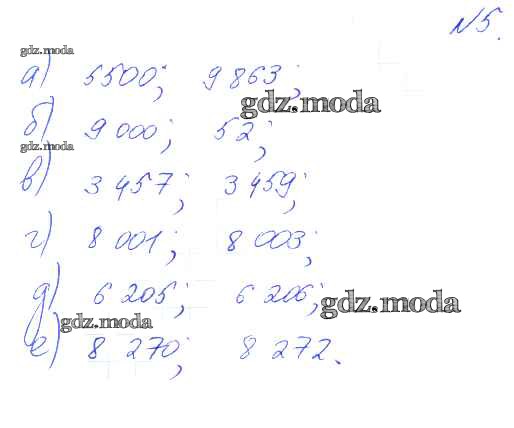 N5.
gdz.moda
а) 5500; 9863;
gdz.moda
б) 9 000; 52;
gdz.moda
в) 3 457; 3 459;
г) 8 001; 8 003;
д) 6 205; 6 206;
gdz.moda
gdz.moda
е) 8 270; 8 272.